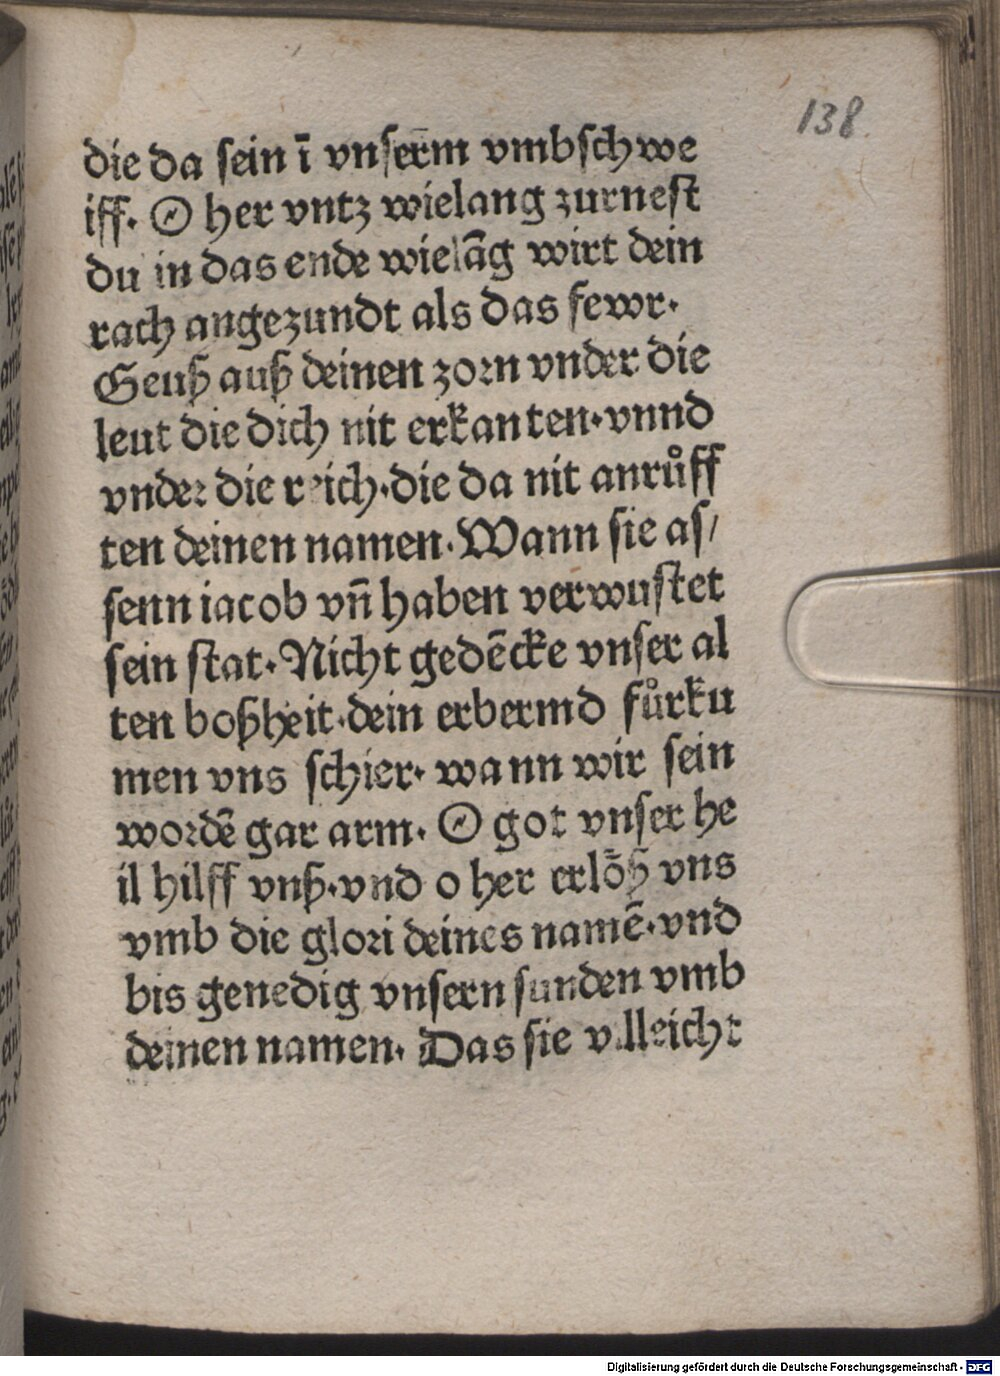 138
die da sein ī vnserm̄ vmbschwe
iff. O her vntz wielang zurnest
du in das ende wielāg wirt dein
rach angezundt als das fewr.
Geuß auß deinen zorn vnder die
leut die dich nit erkanten·vnnd
vnder die reich·die da nit anrůff
ten deinen namen·Wann sie as/
senn iacob vn̄ haben verwustet
sein stat·Nicht gedēcke vnser al
ten boßheit·dein erbermd fůrku
men vns schier· wann wir sein
wordē gar arm· O got vnser he
il hilff vnß·vnd o her erlőß vns
vmb die glori deines namē·vnd
bis genedig vnsern sunden vmb
deinen namen· Das sie villeicht
Digitalisierung gefördert durch die Deutsche Forschungsgemeinschaft - DFG